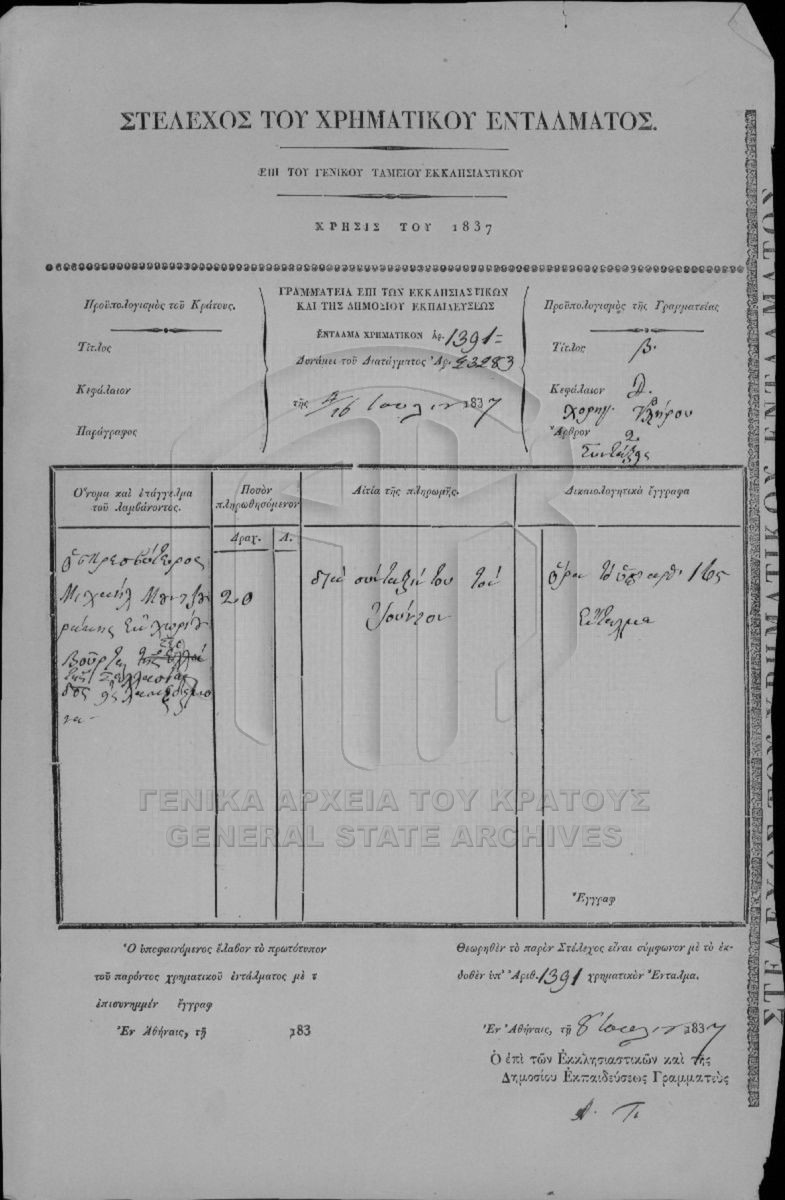 ΣΤΕΛΕΧΟΣ ΤΟΥ ΧΡΗΜΑΤΙΚΟΥ ΕΝΤΑΛΜΑΤΟΣ.
ΕΠΙ ΤΟΥ ΓΕΝΙΚΟΥ ΤΑΜΕΙΟΥ ΕΚΚΛΗΣΙΑΣΤΙΚΟΥ
ΧΡΗΣΙΣ ΤΟΥ 1837
Προϋπολογισμὸς τοῦ Κράτους.
Τίτλος
Κεφάλαιον
Παράγραφος
ΓΡΑΜΜΑΤΕΙΑ ΕΠΙ ΤΩΝ ΕΚΚΛΗΣΙΑΣΤΙΚΩΝ
ΚΑΙ ΤΗΣ ΔΗΜΟΣΙΟΥ ΕΚΠΑΙΔΕΥΣΕΩΣ
ΕΝΤΑΛΜΑ ΧΡΗΜΑΤΙΚΟΝ Ἀρ. 1391=
Δυνάμει τοῦ Διατάγματος Ἀρ. 23283
τῆς 4/16 Ἰουλίου 1837
Προϋπολογισμὸς τῆς Γραμματείας
Τίτλος β.
Κεφάλαιον
Χορηγ. Κλήρου
Ἄρθρον 2
Συντάξεις
Ὄνομα καὶ ἐπάγγελμα
τοῦ λαμβάνοντος.
Ποσὸν
πληρωθησόμενον
Δραχ. Λ.
Αἰτία τῆς πληρωμῆς.
Δικαιολογητικὰ ἔγγραφα
Ὁ πρεσβύτερος
Μιχαὴλ
20
διὰ σύνταξίν του τοῦ
Ἰουνίου
ὅρα τὸ ὑπ' ἀριθ. 165
ἔνταλμα
Ἔγγραφ
ΓΕΝΙΚΑ ΑΡΧΕΙΑ ΤΟΥ ΚΡΑΤΟΥΣ
GENERAL STATE ARCHIVES
Ὁ ὑποφαινόμενος ἔλαβον τὸ πρωτότυπον
τοῦ παρόντος χρηματικοῦ ἐντάλματος μὲ τ
ἐπισυνημμέν ἔγγραφ
Ἐν Ἀθήναις, τῇ 183
Θεωρηθὲν τὸ παρὸν Στέλεχος εἶναι σύμφωνον μὲ τὸ ἐκ-
δοθὲν ὑπ' Ἀριθ. 1391 χρηματικὸν Ἔνταλμα.
Ἐν Ἀθήναις, τῇ 8 Ἰουλίου 1837
Ὁ ἐπὶ τῶν Ἐκκλησιαστικῶν καὶ τῆς
Δημοσίου Ἐκπαιδεύσεως Γραμματεὺς
Α. Π.
ΣΤΕΛΕΧΟΣ ΤΟΥ ΧΡΗΜΑΤΙΚΟΥ ΕΝΤΑΛΜΑΤΟΣ